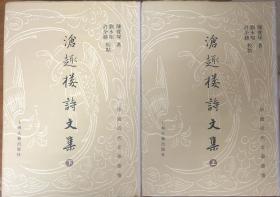 陳寶琛 著
劉永翔 許全勝 校點
滄趣樓詩文集
下
中國近代文學叢書
上海古籍出版社
陳寶琛 著
劉永翔 許全勝 校點
滄趣樓詩文集
上
中國近代文學叢書
上海古籍出版社